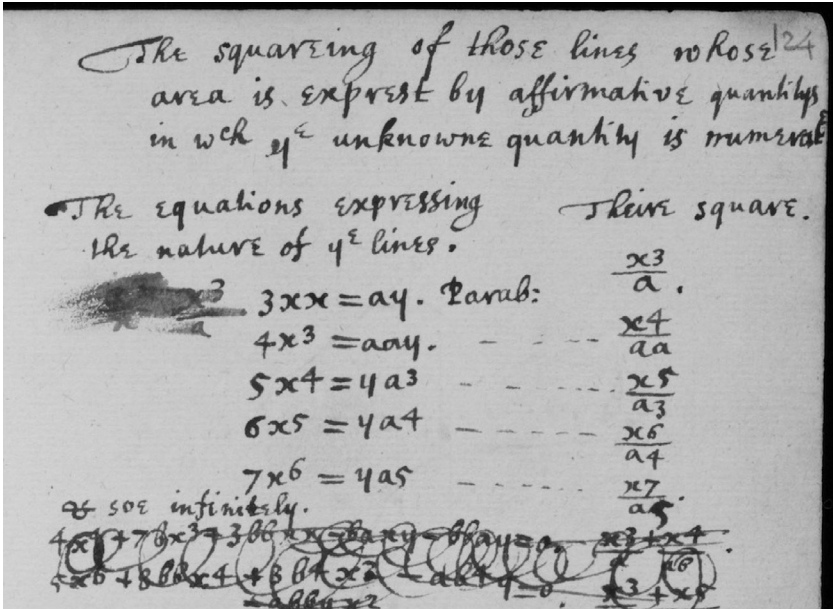 The squareing of those lines whose 124
area is exprest by affirmative quantitys
in wch yᵉ unknowne quantity is numerat
The equations expressing Theire square.
the nature of yᵉ lines.
3xx = ay. Parab: x3/a.
4x3 = aay. x4/aa
5x4 = ya3 x5/a3
6x5 = ya4 x6/a4
7x6 = ya5 x7/a5.
& soe infinitely.